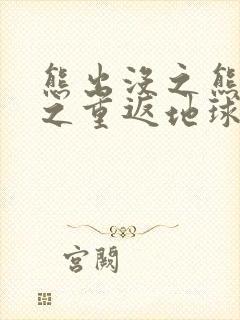 熊出没之熊
之重返地球
宫阙